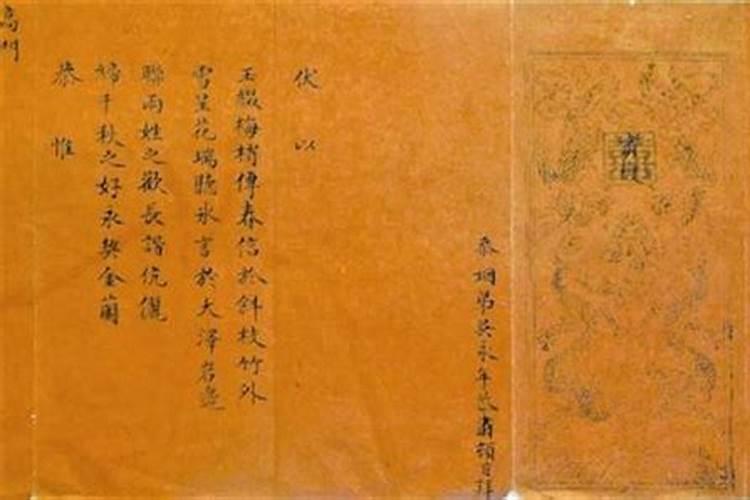 忝姻弟吳永年 肅頓首拜
伏以
玉綴梅梢傳春信於斜枝竹外
雪呈花瑞聽冰言於大澤岩邊
聯兩姓之歡長諧伉儷
締千秋之好永契金蘭
恭惟
高門